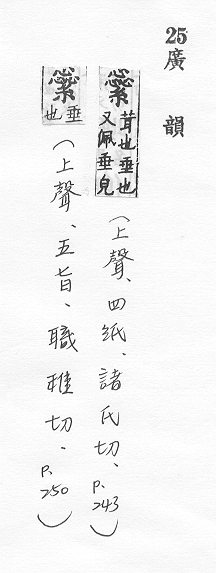 25廣韻
繠茸也垂也又佩垂皃(上聲、四紙、諸氏切、p.243)
繠垂也(上聲、五旨、職雉切.p.250)